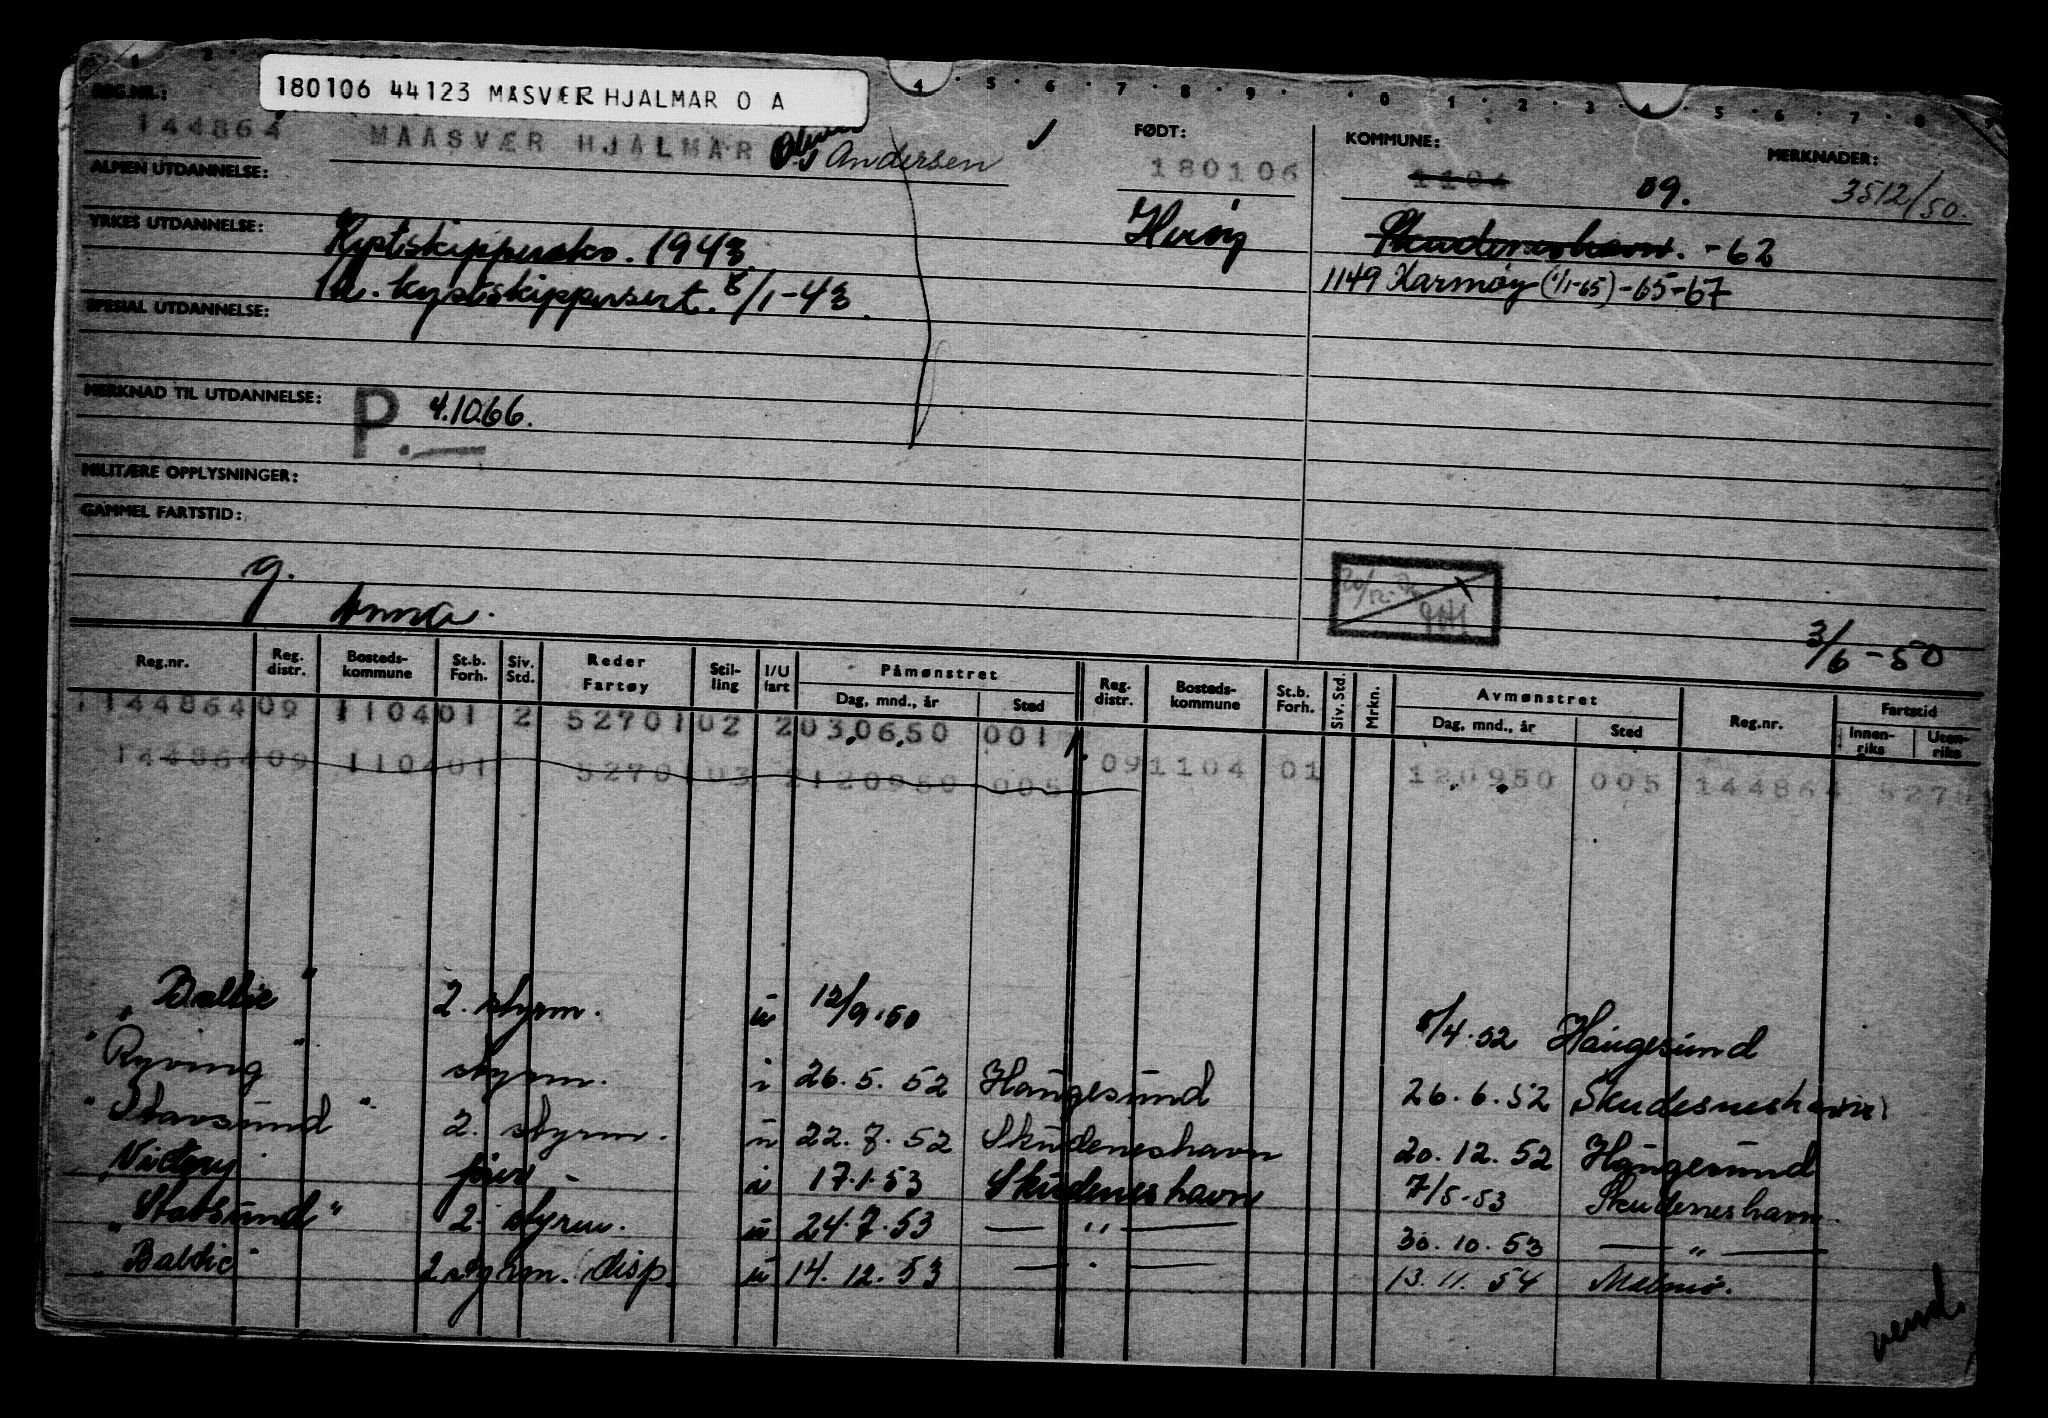 180106 44123 MÅSVÆR HJALMAR O A
REG.NR.: 144864 MAASVÆR HJALMAR Andersen
FØDT: 180106
KOMMUNE: 1104 09. MERKNADER: 3512/50.
ALMEN UTDANNELSE:
Skudeneshavn. -62
YRKES UTDANNELSE: Kystskippersko. 1943.
Herøy
1149 Karmøy (1/1-65) -65-67
kystskippersert. 8/1-43.
SPESIAL UTDANNELSE:
MERKNAD TIL UTDANNELSE: P. 4.10.66.
MILITÆRE OPPLYSNINGER:
GAMMEL FARTSTID:
g. Anna.
3/6-50
Reg.nr. Reg. distr. Bosteds-kommune St.b. Forh. Siv. Std. Reder Fartøy Stil-ling I/U fart Påmønstret Dag, mnd., år Sted Reg. distr. Bosteds-kommune St.b. Forh. Siv. Std. Mrkn. Avmønstret Dag, mnd., år Sted Reg.nr. Fartstid Innen-riks Uten-riks
144864 09 1104 01 2 5270 1 02 2 03.06.50 001
144864 09 1104 01 5270 1 03 2 120950 005 09 1104 01 120950 005 144864 5270
"Baltic" 2. styrm. u 12/9.50 8/4.52 Haugesund
"Ryving" styrm. i 26.5.52 Haugesund 26.6.52 Skudesneshavn
"Stavsund" 2. styrm. u 22.7.52 Skudeneshavn 20.12.52 Haugesund
Victory i 17.1.53 Skudeneshavn 7/5.53 Skudeneshavn.
"Statsund" 2. styrm. u 24.7.53 — " — 30.10.53 — " —
"Baltic" 2 styrm. (disp u 14.12.53 — " — 13.11.54 Malmø.
vend